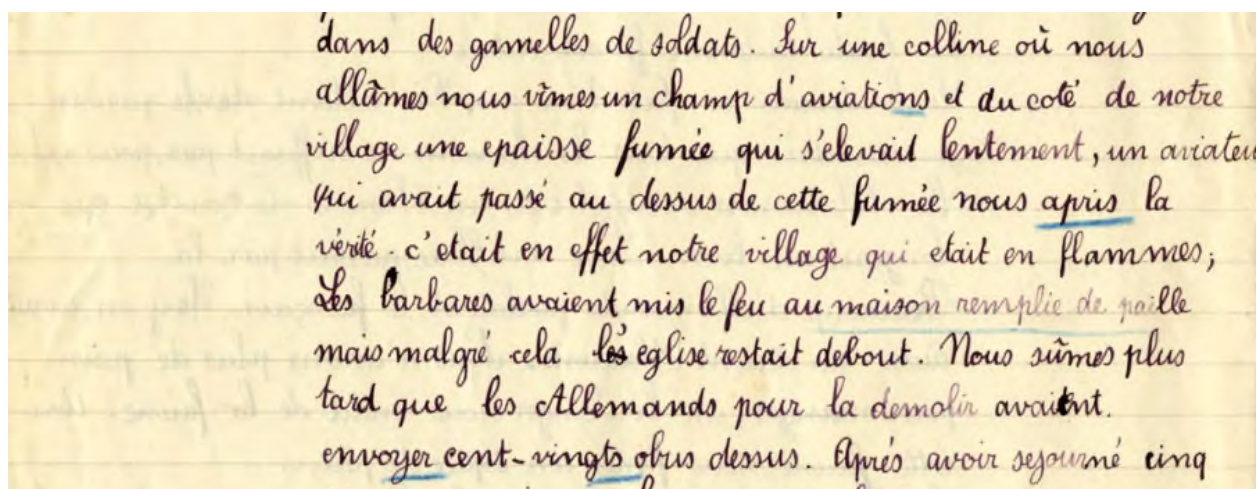 dans des gamelles de soldats. Sur une colline où nous
allâmes nous vîmes un champ d'aviations et du coté de notre
village une epaisse fumée qui s'elevait lentement, un aviateu
qui avait passé au dessus de cette fumée nous apris la
vérité. c'etait en effet notre village qui etait en flammes;
Les barbares avaient mis le feu au maison remplie de paille
mais malgré cela l'eglise restait debout. Nous sûmes plus
tard que les Allemands pour la demolir avaient.
envoyer cent-vingts obus dessus. Aprés avoir sejourné cinq